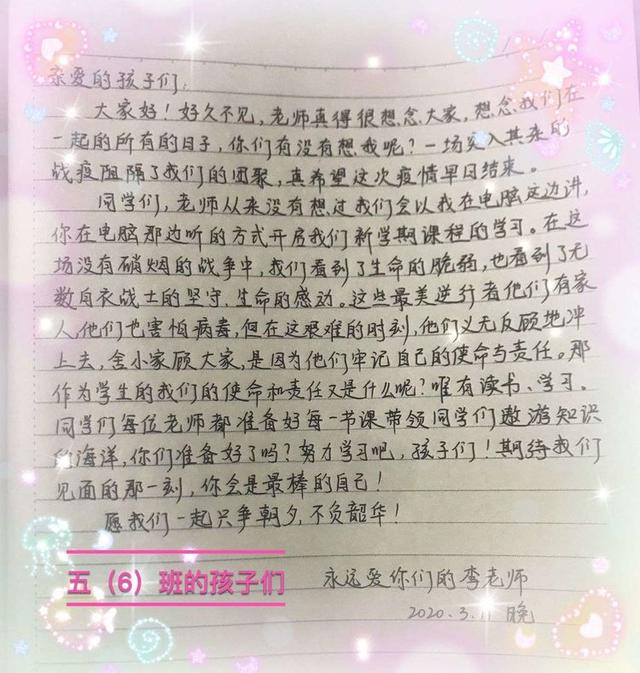 亲爱的孩子们:
大家好！好久不见,老师真得很想念大家,想念我们在
一起的所有的日子,你们有没有想我呢?一场突入其来的
战疫阻隔了我们的团聚,真希望这次疫情早日结束。
同学们,老师从来没有想过我们会以我在电脑这边讲,
你在电脑那边听的方式开启我们新学期课程的学习。在这
场没有硝烟的战争中,我们看到了生命的脆弱,也看到了无
数白衣战士的坚守、生命的感动。这些最美逆行者他们有家
人,他们也害怕病毒,但在这艰难的时刻,他们义无反顾地冲
上去,舍小家顾大家,是因为他们牢记自己的使命与责任。那
作为学生的我们的使命和责任又是什么呢?唯有读书、学习。
同学们每位老师都准备好每一节课带领同学们遨游知识
的海洋,你们准备好了吗?努力学习吧,孩子们！期待我们
见面的那一刻,你会是最棒的自己！
愿我们一起只争朝夕,不负韶华！
五（6）班的孩子们
永远爱你们的李老师
2020.3.11 晚